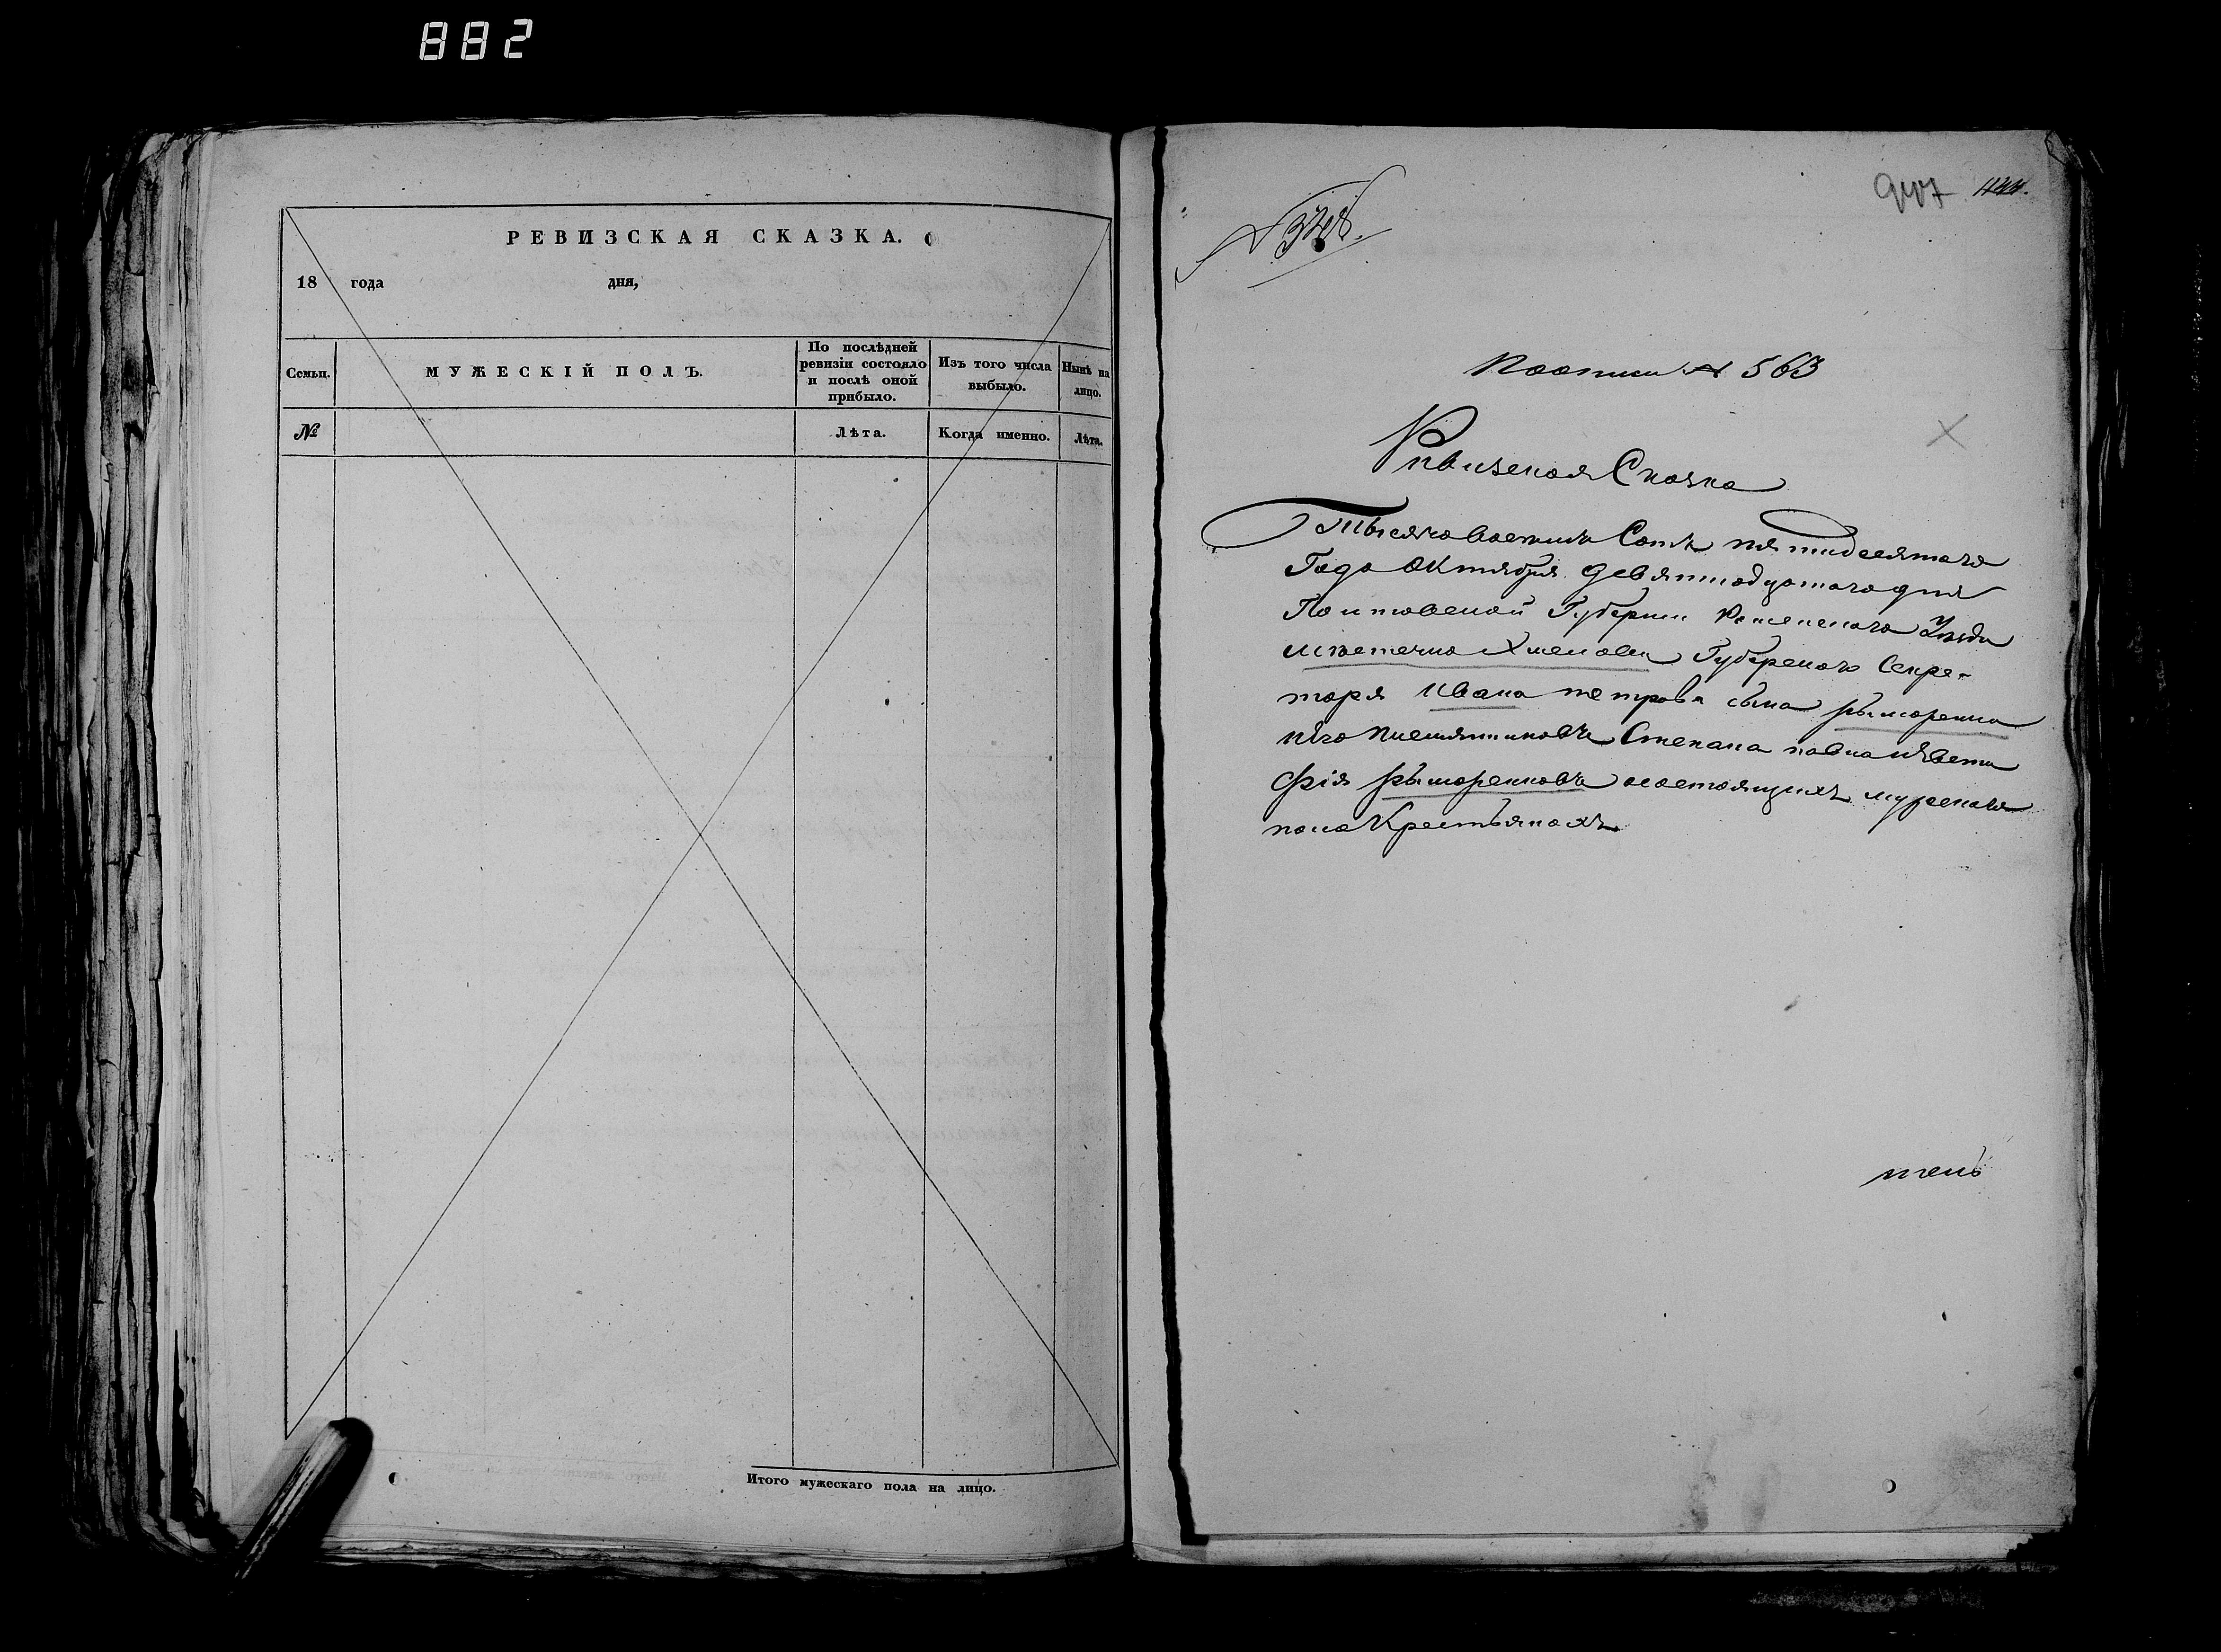 882
РЕВИЗСКАЯ СКАЗКА.
18 года дня,
Семьи.
МУЖЕСКІЙ ПОЛЪ.
По послѣдней ревизіи состояло и послѣ оной прибыло.
Изъ того числа выбыло.
Нынѣ на лицо.
№
Лѣта.
Когда именно.
Лѣта.
Итого мужескаго пола на лицо.
По описи № 563
Ревизская Сказка
Тысяча восемь Сотъ пятидесятого
Года Октября девятнадцатого дня
Полтовской Губернии Роменского Уезда
местечка Хмелова Губернского Секре-
торя Ивана петрова сына рыморенка
его племянниковъ Степана павла
рыморенковъ о состоящихъ мужеского
пола Крестьянахъ